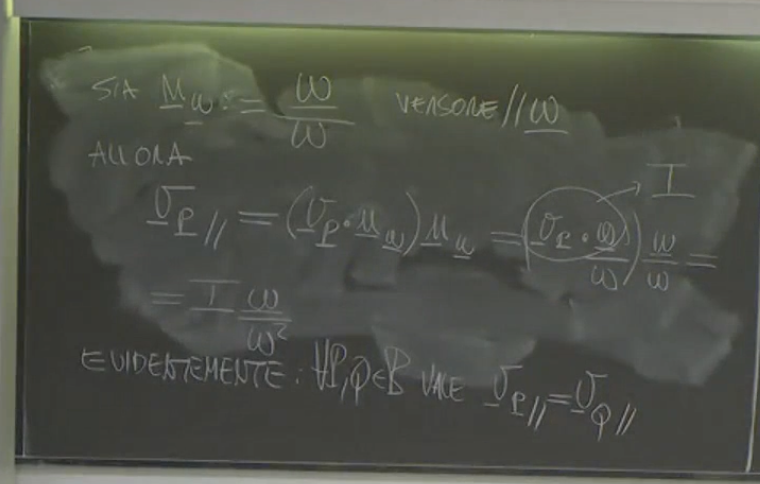 SIA u̲_ω̲ := ω̲/ω VERSORE // ω̲
ALLORA
v̲_P// = (v̲_P · u̲_ω̲) u̲_ω̲ = (v̲_P · ω̲/ω) ω̲/ω = → I
= I ω̲/ω²
EVIDENTEMENTE: ∀P,Q∈B VALE v̲_P// = v̲_Q//